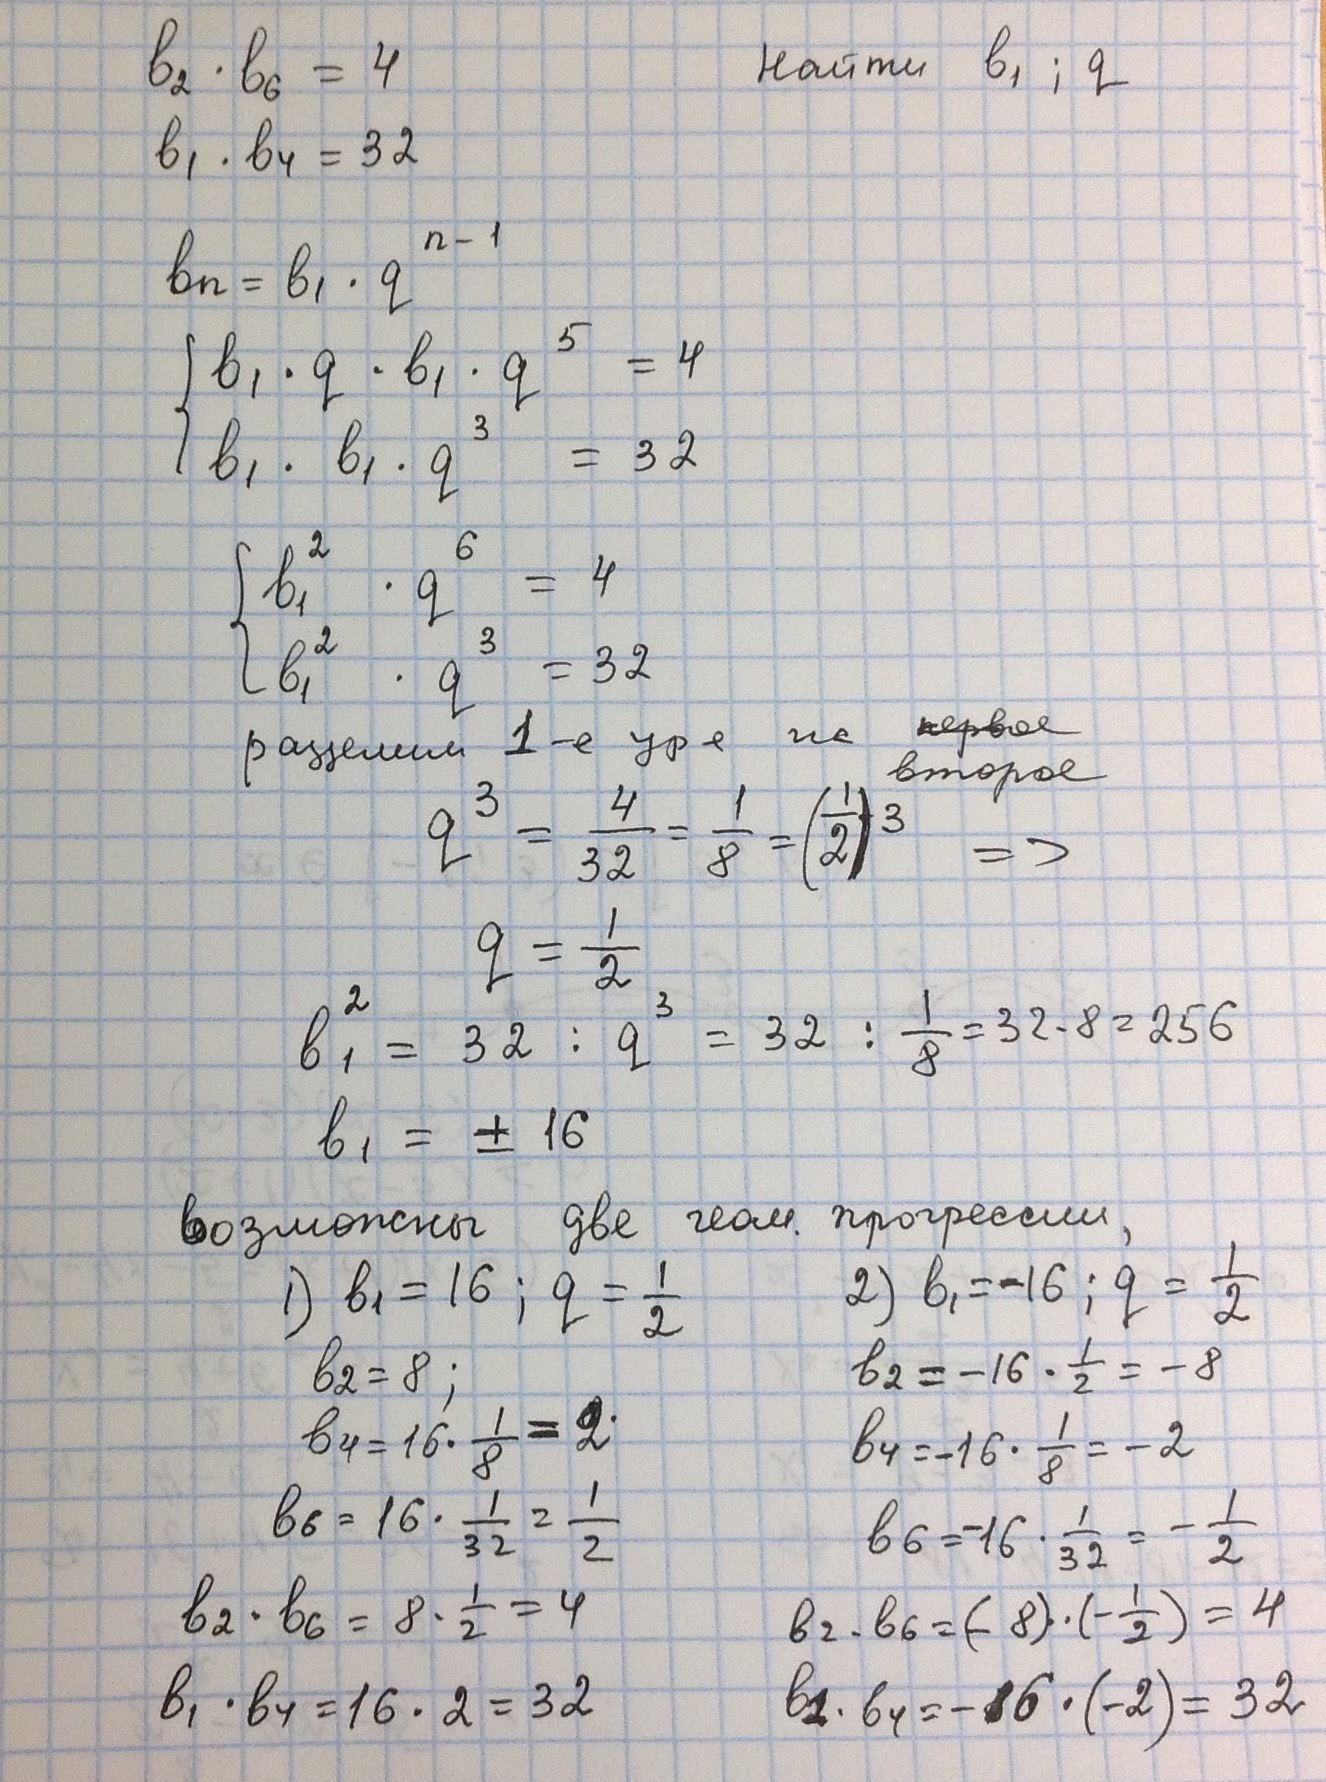 b₂ · b₆ = 4 Найти b₁ ; q
b₁ · b₄ = 32
bₙ = b₁ · qⁿ⁻¹
{ b₁ · q · b₁ · q⁵ = 4
b₁ · b₁ · q³ = 32
{ b₁² · q⁶ = 4
b₁² · q³ = 32
разделим 1-е ур-е на первое
второе
q³ = 4/32 = 1/8 = (1/2)³ =>
q = 1/2
b₁² = 32 : q³ = 32 : 1/8 = 32 · 8 = 256
b₁ = ± 16
возможны две геом. прогрессии,
1) b₁ = 16 ; q = 1/2 2) b₁ = -16 ; q = 1/2
b₂ = 8 ; b₂ = -16 · 1/2 = -8
b₄ = 16 · 1/8 = 2 b₄ = -16 · 1/8 = -2
b₆ = 16 · 1/32 = 1/2 b₆ = -16 · 1/32 = -1/2
b₂ · b₆ = 8 · 1/2 = 4 b₂ · b₆ = (-8) · (-1/2) = 4
b₁ · b₄ = 16 · 2 = 32 b₁ · b₄ = -16 · (-2) = 32